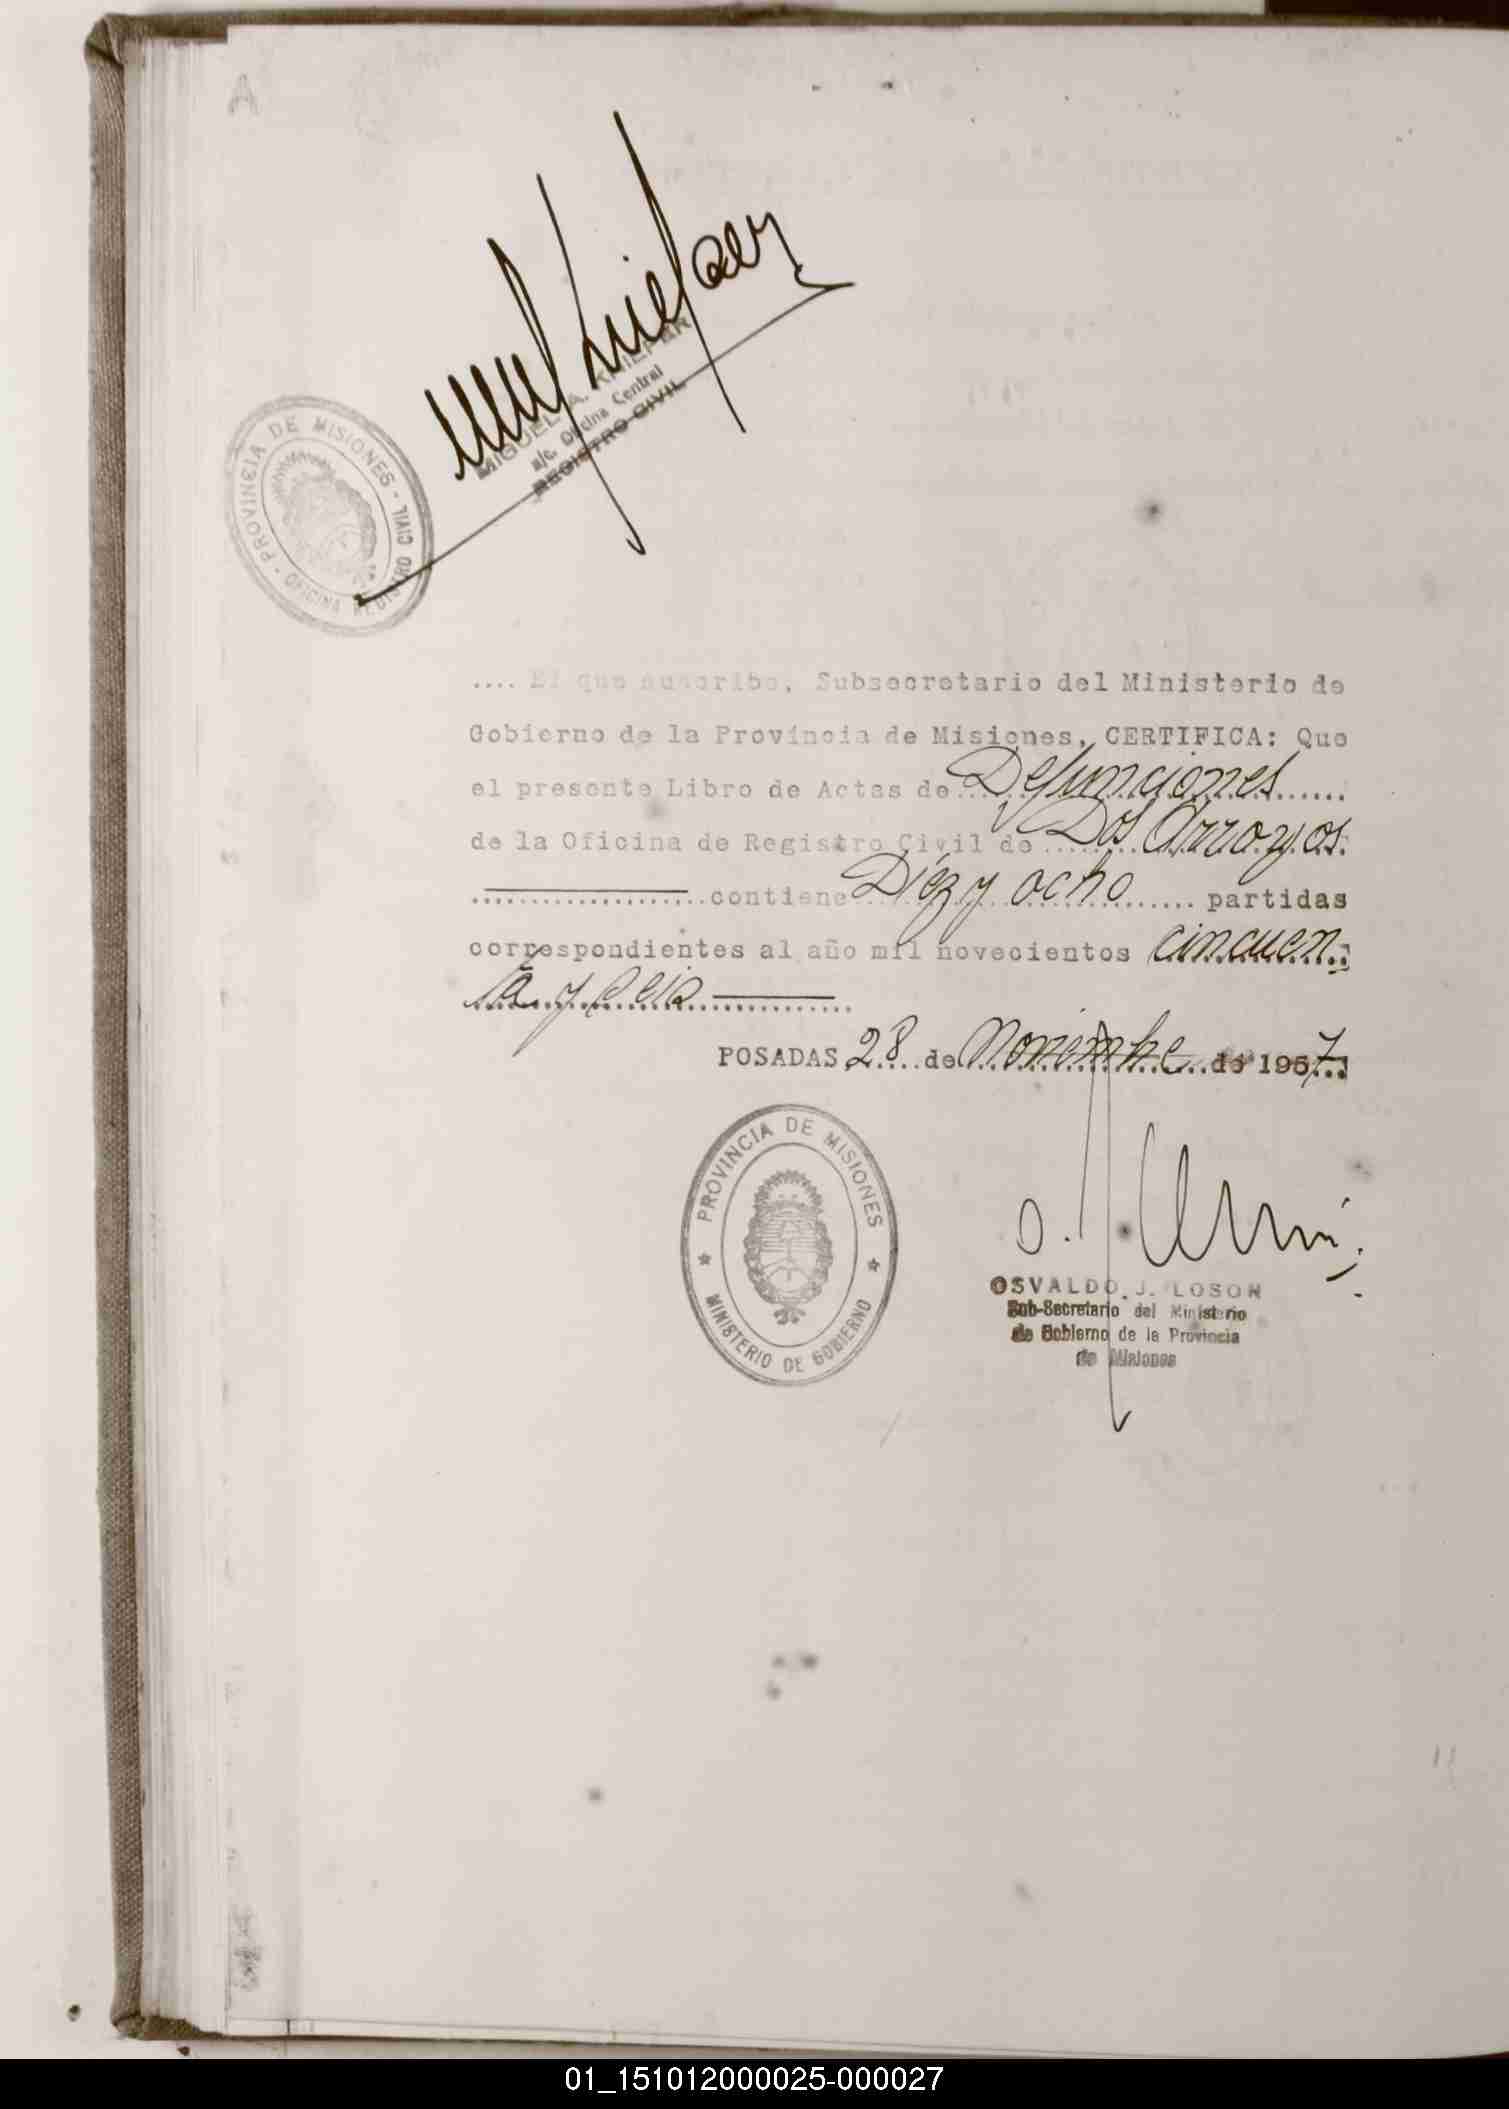 A
MIGUEL A. KNIEPAR
a/c. Oficina Central
REGISTRO CIVIL
PROVINCIA DE MISIONES - OFICINA REGISTRO CIVIL -
.... El que suscribe, Subsecretario del Ministerio de
Gobierno de la Provincia de Misiones, CERTIFICA: Que
el presente Libro de Actas de Defunciones
de la Oficina de Registro Civil de Dos Arroyos.
contiene Diéz y ocho partidas
correspondientes al año mil novecientos cincuen-
ta y seis
POSADAS 28 de Noviembre de 1957
PROVINCIA DE MISIONES
MINISTERIO DE GOBIERNO
OSVALDO J. LOSON
Sub-Secretario del Ministerio
de Gobierno de la Provincia
de Misiones
01_151012000025-000027